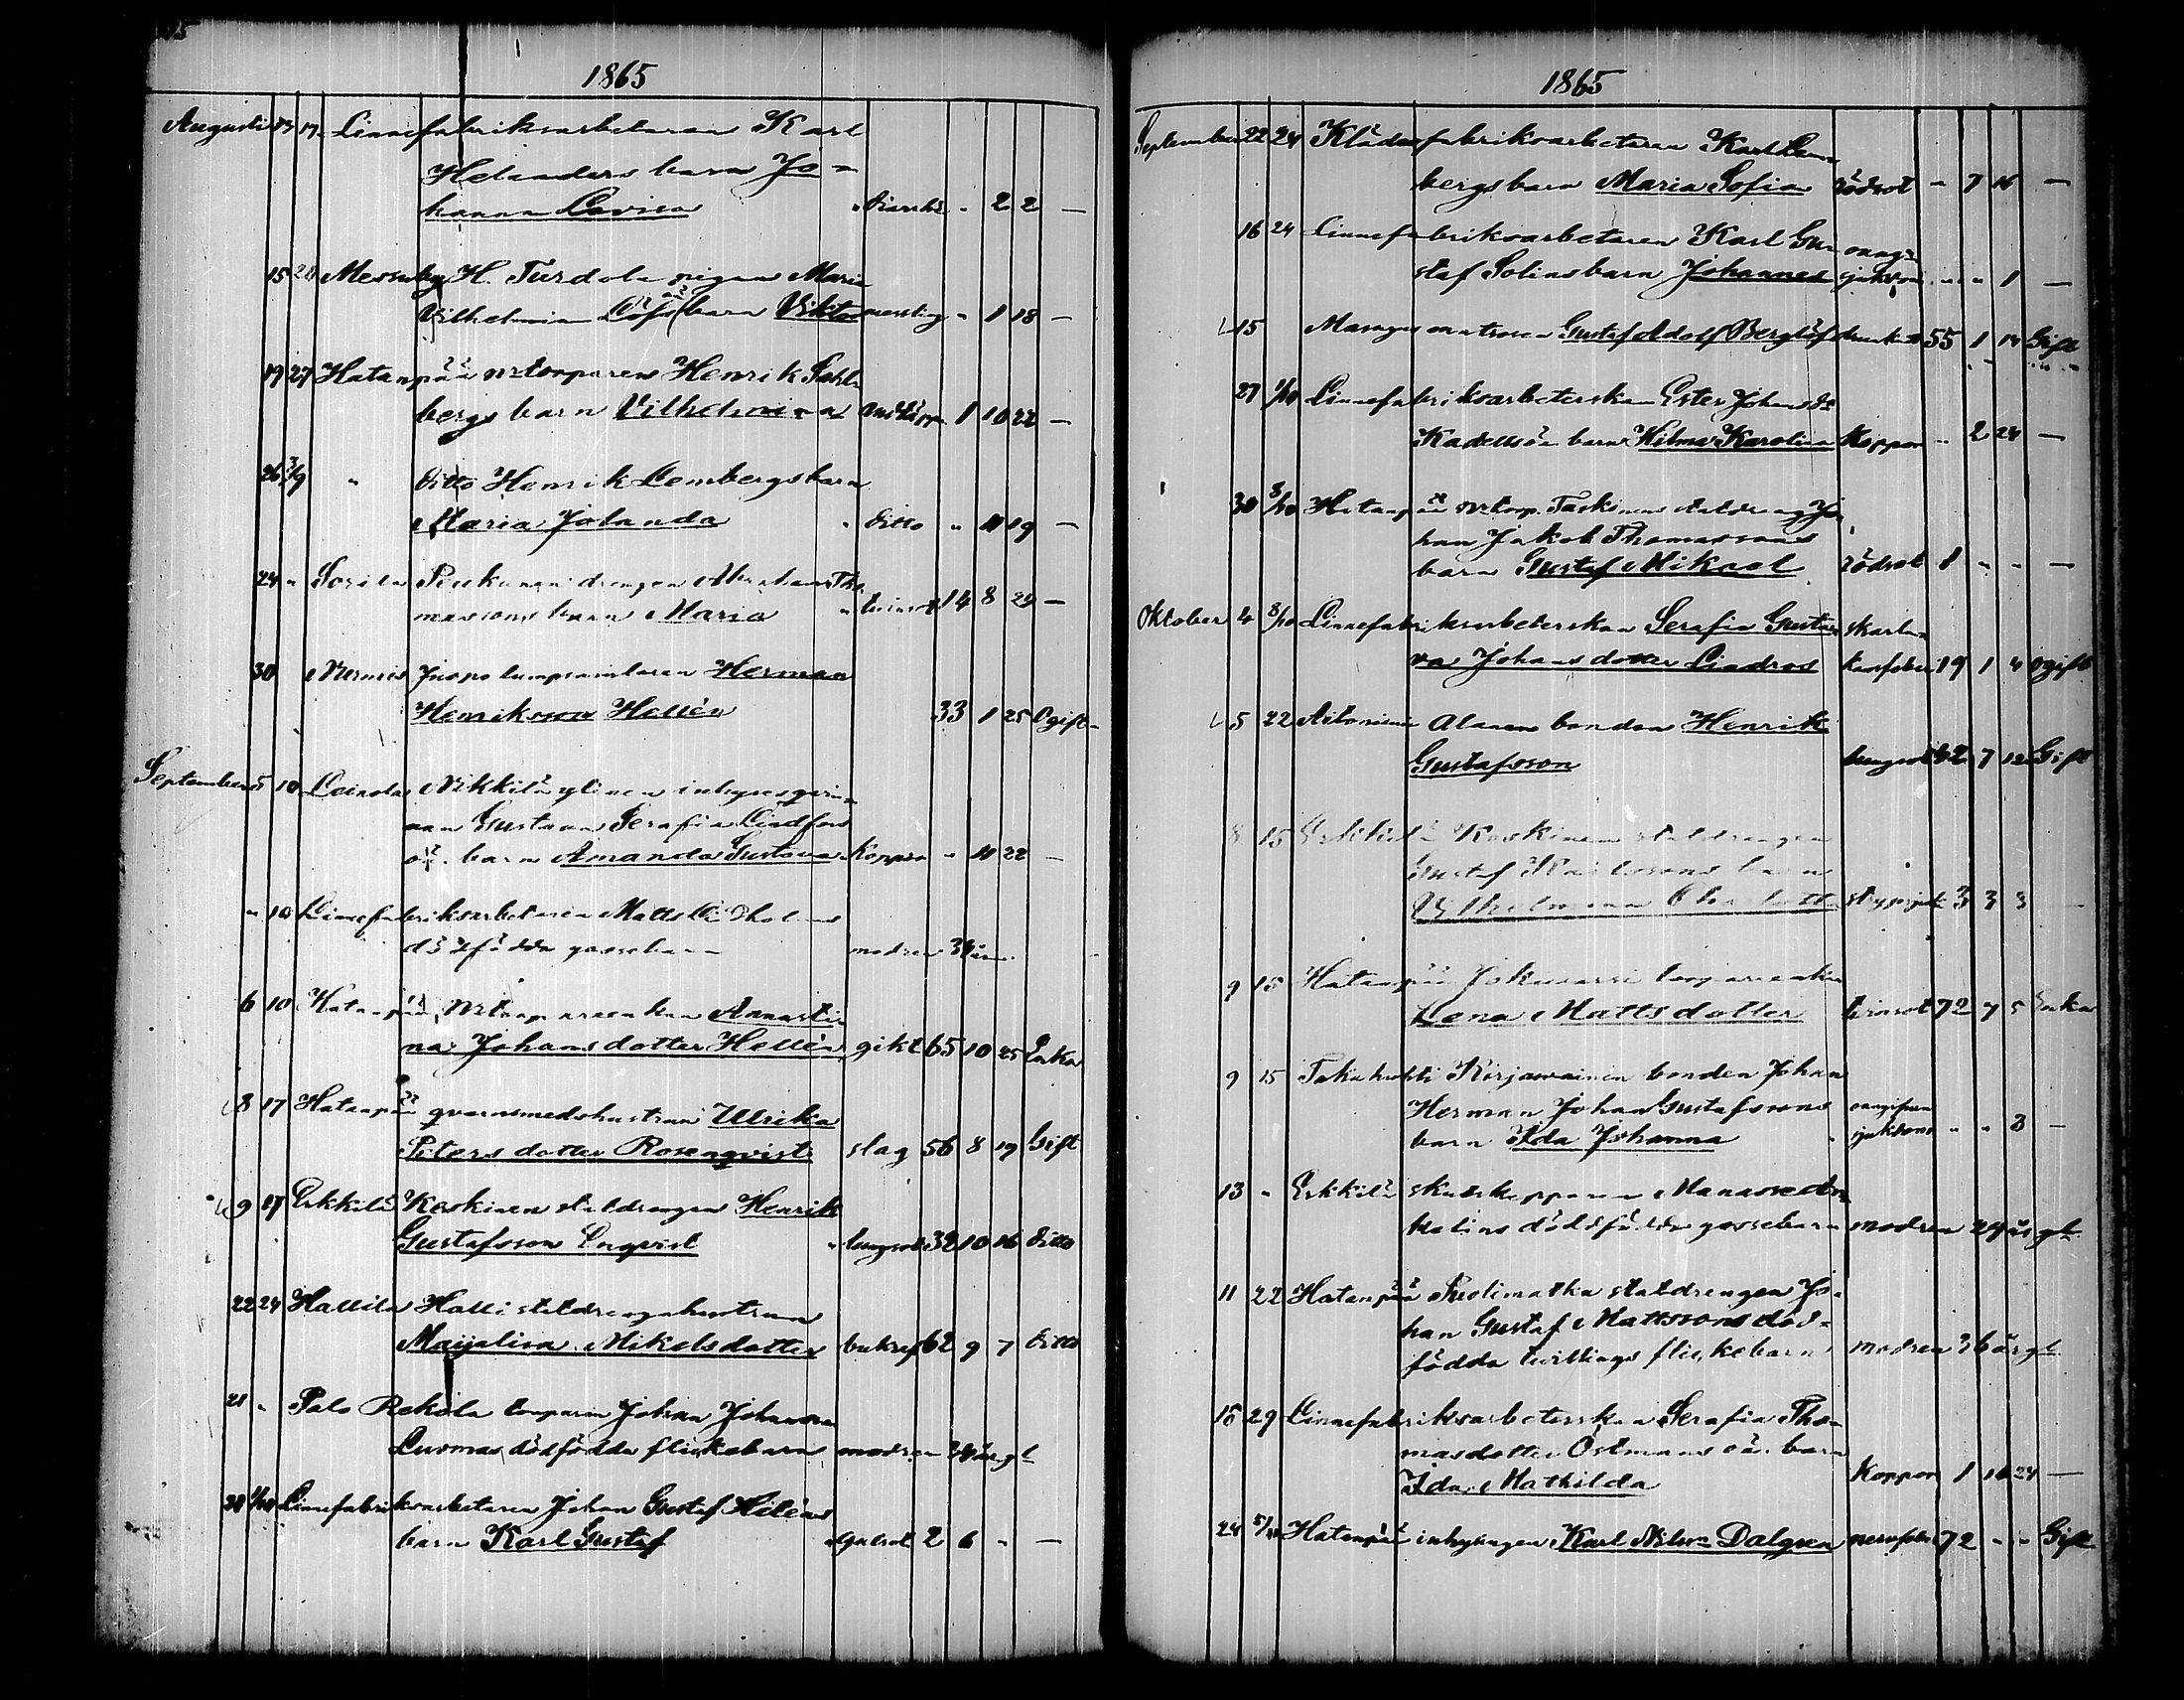 1865
Augusti 13 17 Linnefabriksarbetaren Karl
Helanders barn Jo-
hanna Lovisa diarrhé - 2 2 —
15 20 Messuby H. Turdola pigan Maria
Vilhelmina Löfs barn Viktor messling - 1 18 —
19 27 Hatanpää Mrtorparen Henrik Sahl-
bergs barn Vilhelmina andtäppa 1 10 22 —
26 3/9 " Ditto Henrik Lembergs barn
Maria Jolanda ditto " 10 19 —
24 " Sorila Penkunen drengen Abraham Tho-
massons barn Maria 14 8 29 —
30 Nurmis Juopo lumpsamlaren Herman
Henriksson Hellén 33 1 25 Ogift
September 5 10 Leinola Nikkilä ylinen inhyses qvin-
nan Gustava Serafia Lindfors
oä. barn Amanda Gustava Koppor " 10 22 —
" 10 Linnefabriksarbetaren Matts
dödfödda gossebarn modren 34 år
6 10 Hatanpää Mrtorpareenkan Annasti-
na Johansdotter Hellén gikt 65 10 25 Enka
8 17 Hatanpää qvarnsmedshustrun Ulrika
Petersdotter Rosenqvist slag 56 8 19 Gift
9 17 Erkkilä Koskinen statdrengen Henrik
Gustafsson Enqvist lungsot 32 10 16 ditto
22 24 Hallila Halli statdrengshustrun
Maijalisa Mikelsdotter bukref 62 9 7 ditto
21 " Palo Rekola torparen Johan Johansson
Luomas dödfödda flickebarn modren 34 årgl
28 1/10 Linnefabriksarbetaren Johan Gustaf Hiléns
barn Karl Gustaf 2 6 - —
1865
September 22 24 Klädesfabriksarbetaren Karl Lem-
bergs barn Maria Sofia rödsot - 7 16 —
16 24 Linnefabriksarbetaren Karl Gu- oangif.
staf Solins barn Johannes sjukdom " " 1 —
15 matrosen Gustaf Adolf Berglöf drunknat 55 1 14 Gift
27 1/10 Linnefabriksarbetterskan Ester Johansdr
oä barn Hilma Karolina Koppor - 2 24 —
30 8/10 Hatanpää Mrtorp. Taskinens statdreng Jo-
han Jakob Thomassons
barn Gustaf Mikael rödsot 1 - - —
Oktober 4 8/10 Linnefabriksarbeterskan Serafia Gusta- skarla-
va Johansdotter Lindros kansfeber 19 1 4 Ogift
5 22 Aitoniemi Alanen bonden Henrik
Gustafsson lungsot 42 7 12 Gift
8 15 Erkkilä Koskinen statdrengen
Gustaf Karlssons barn
Vilhelmina Charlotta strypsjuk 3 3 3 —
9 15 Hatanpää Jokivarsi torpareenkan
Lena Mattsdotter tvinsot 72 7 5 Enka
9 15 Takahuhti Kirjavainen bonden Johan
Herman Johan Gustafssons oangifven
barn Ida Johanna sjukdom " " 3 —
13 " Erkkilä Manasse
dödfödda gossebarn modren 29 årgl.
11 22 Hatanpää Puolimatka statdrengen Jo-
han Gustaf Mattssons död-
födda tvillings flickebarn modren 36 årgl
15 29 Linnefabriksarbeterskan Serafia Tho-
masdotter Östmans oä. barn
Ida Mathilda Koppor 1 10 24 —
24 5/11 Hatanpää inhysingen Karl Nilsn Dalgren nervfeber 72 - - Gift